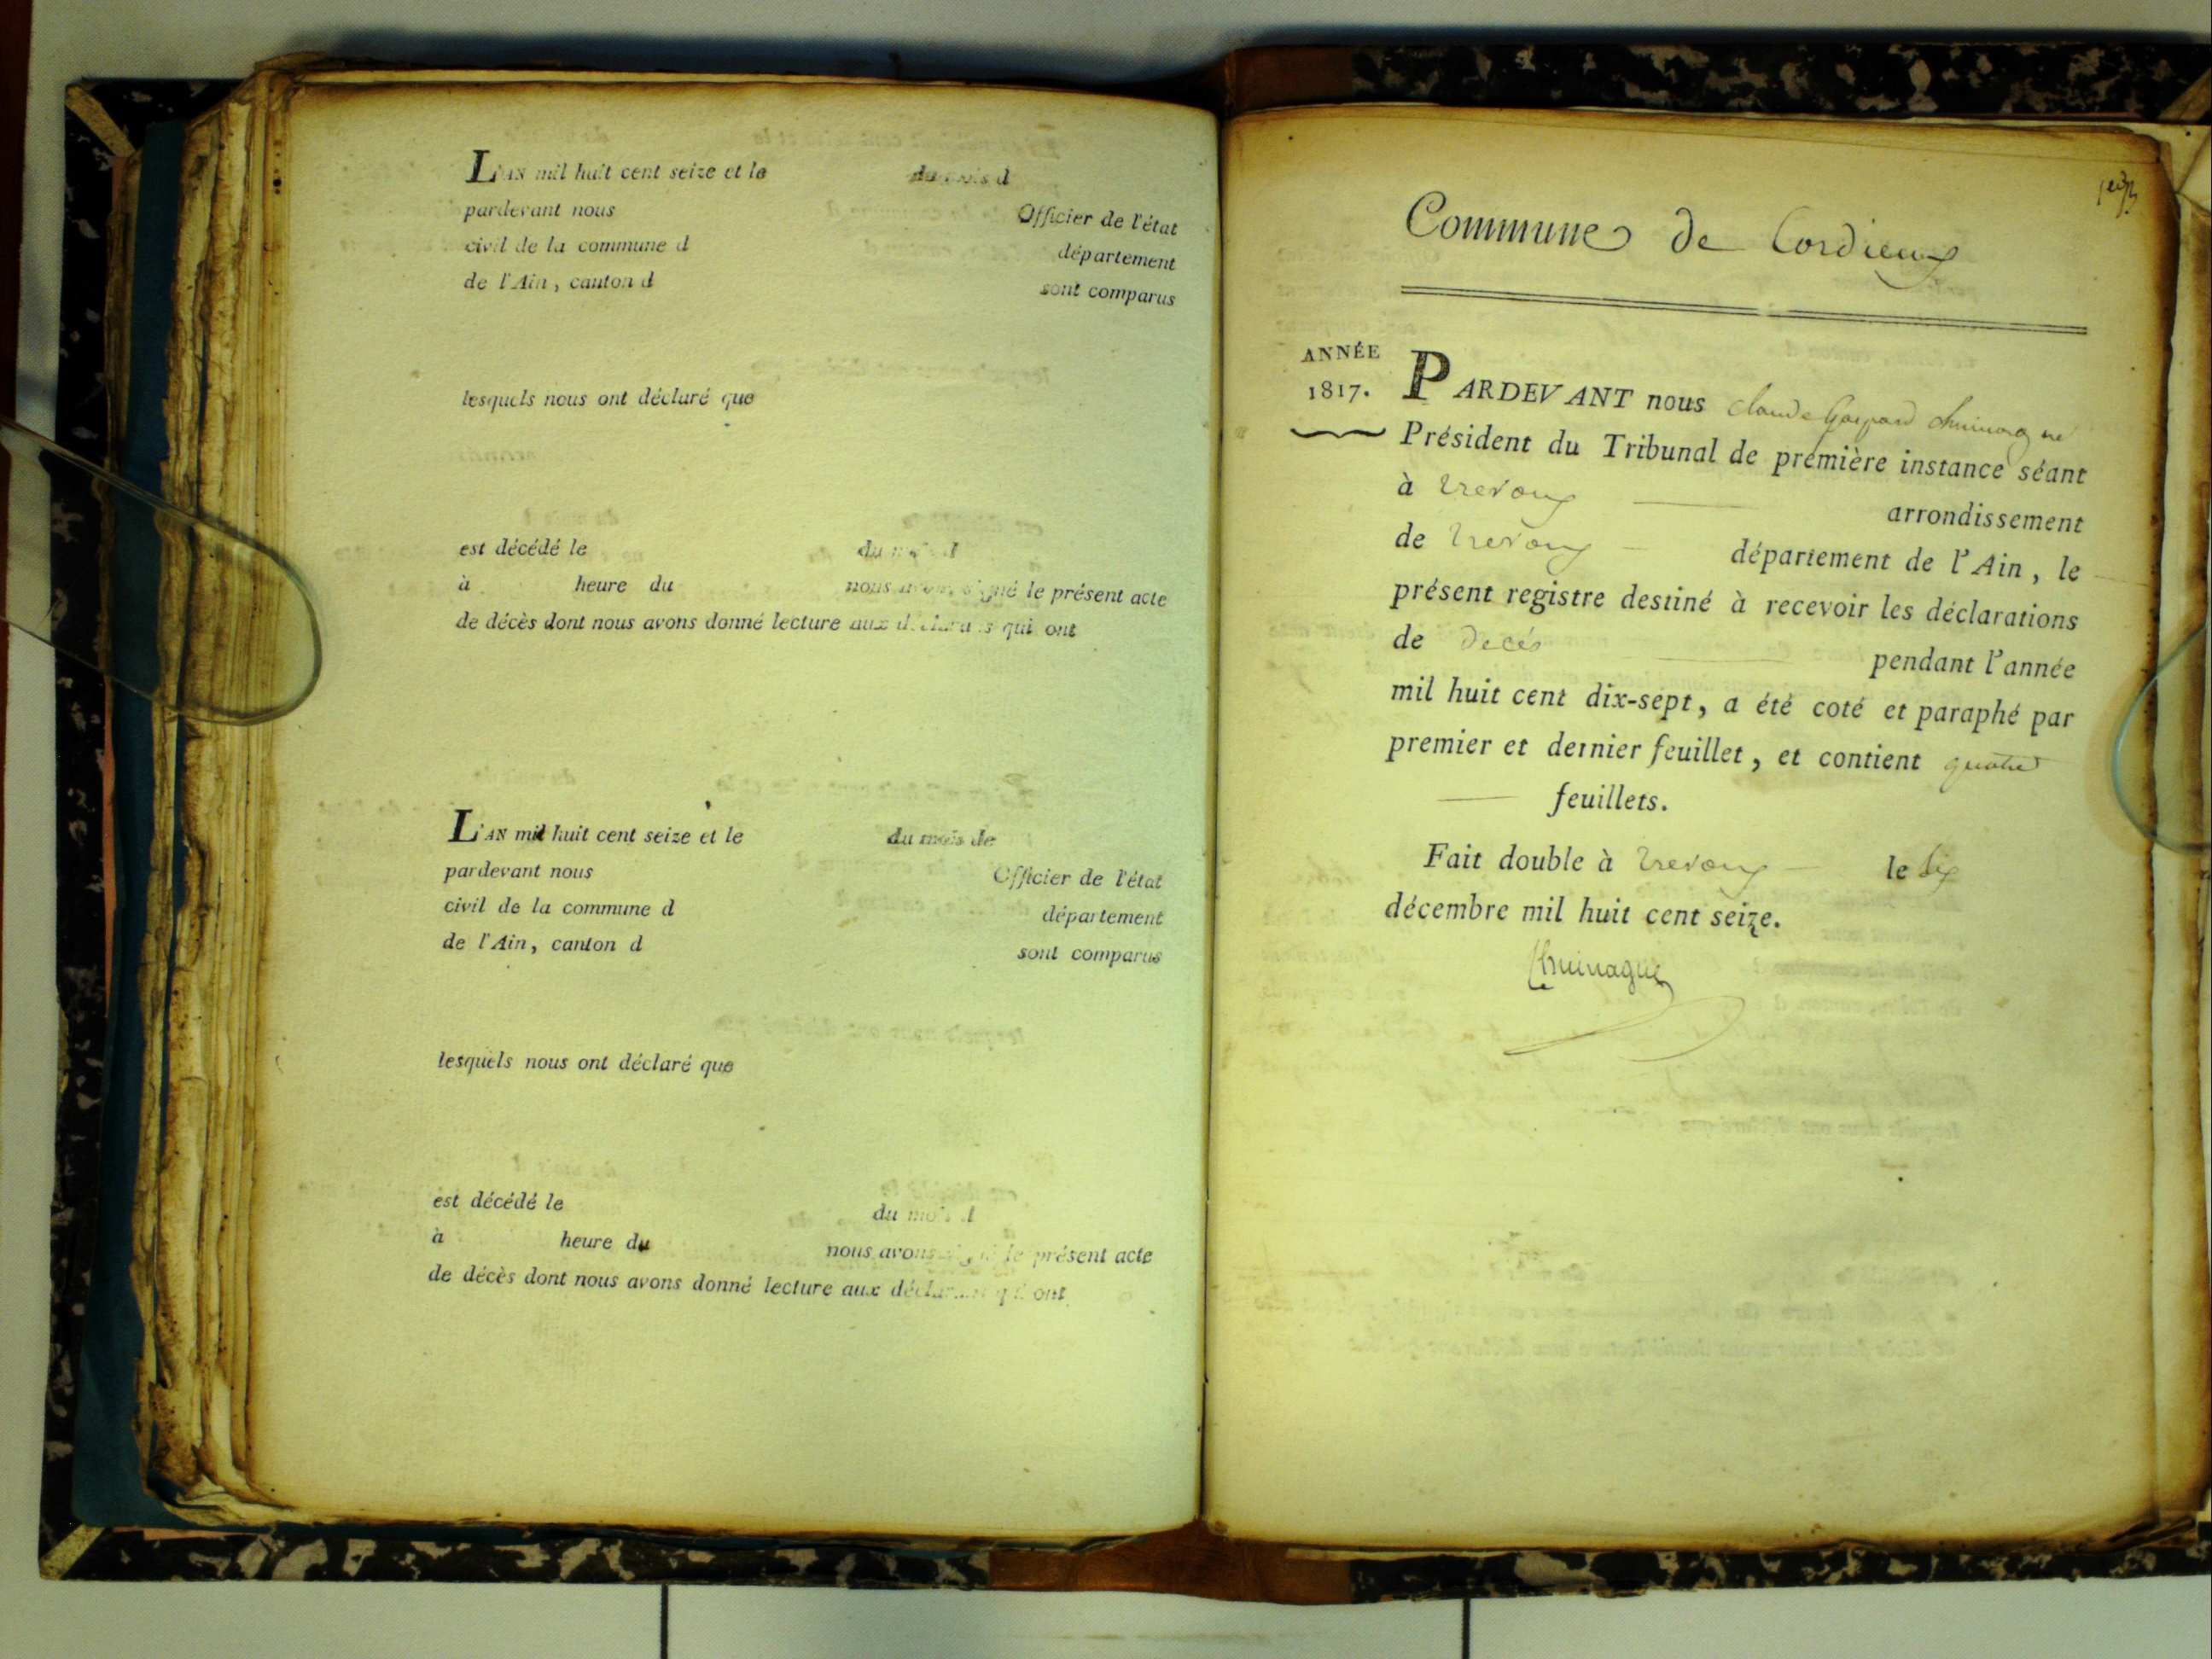 L'AN mil huit cent seize et le du mois d
pardevant nous Officier de l'état
civil de la commune d département
de l'Ain, canton d sont comparus
lesquels nous ont déclaré que
est décédé le du mois d
à heure du nous avons signé le présent acte
de décès dont nous avons donné lecture aux déclarans qui ont
L'AN mil huit cent seize et le du mois de
pardevant nous Officier de l'état
civil de la commune d département
de l'Ain, canton d sont comparus
lesquels nous ont déclaré que
est décédé le du mois d
à heure du nous avons signé le présent acte
de décès dont nous avons donné lecture aux déclarans qui ont
Commune de Cordieux
ANNÉE
1817.
PARDEVANT nous Claude Gaspard
Président du Tribunal de première instance séant
à Trevoux arrondissement
de Trevoux département de l'Ain, le
présent registre destiné à recevoir les déclarations
de Décés pendant l'année
mil huit cent dix-sept, a été coté et paraphé par
premier et dernier feuillet, et contient quatre
feuillets.
Fait double à Trevoux le dix
décembre mil huit cent seize.